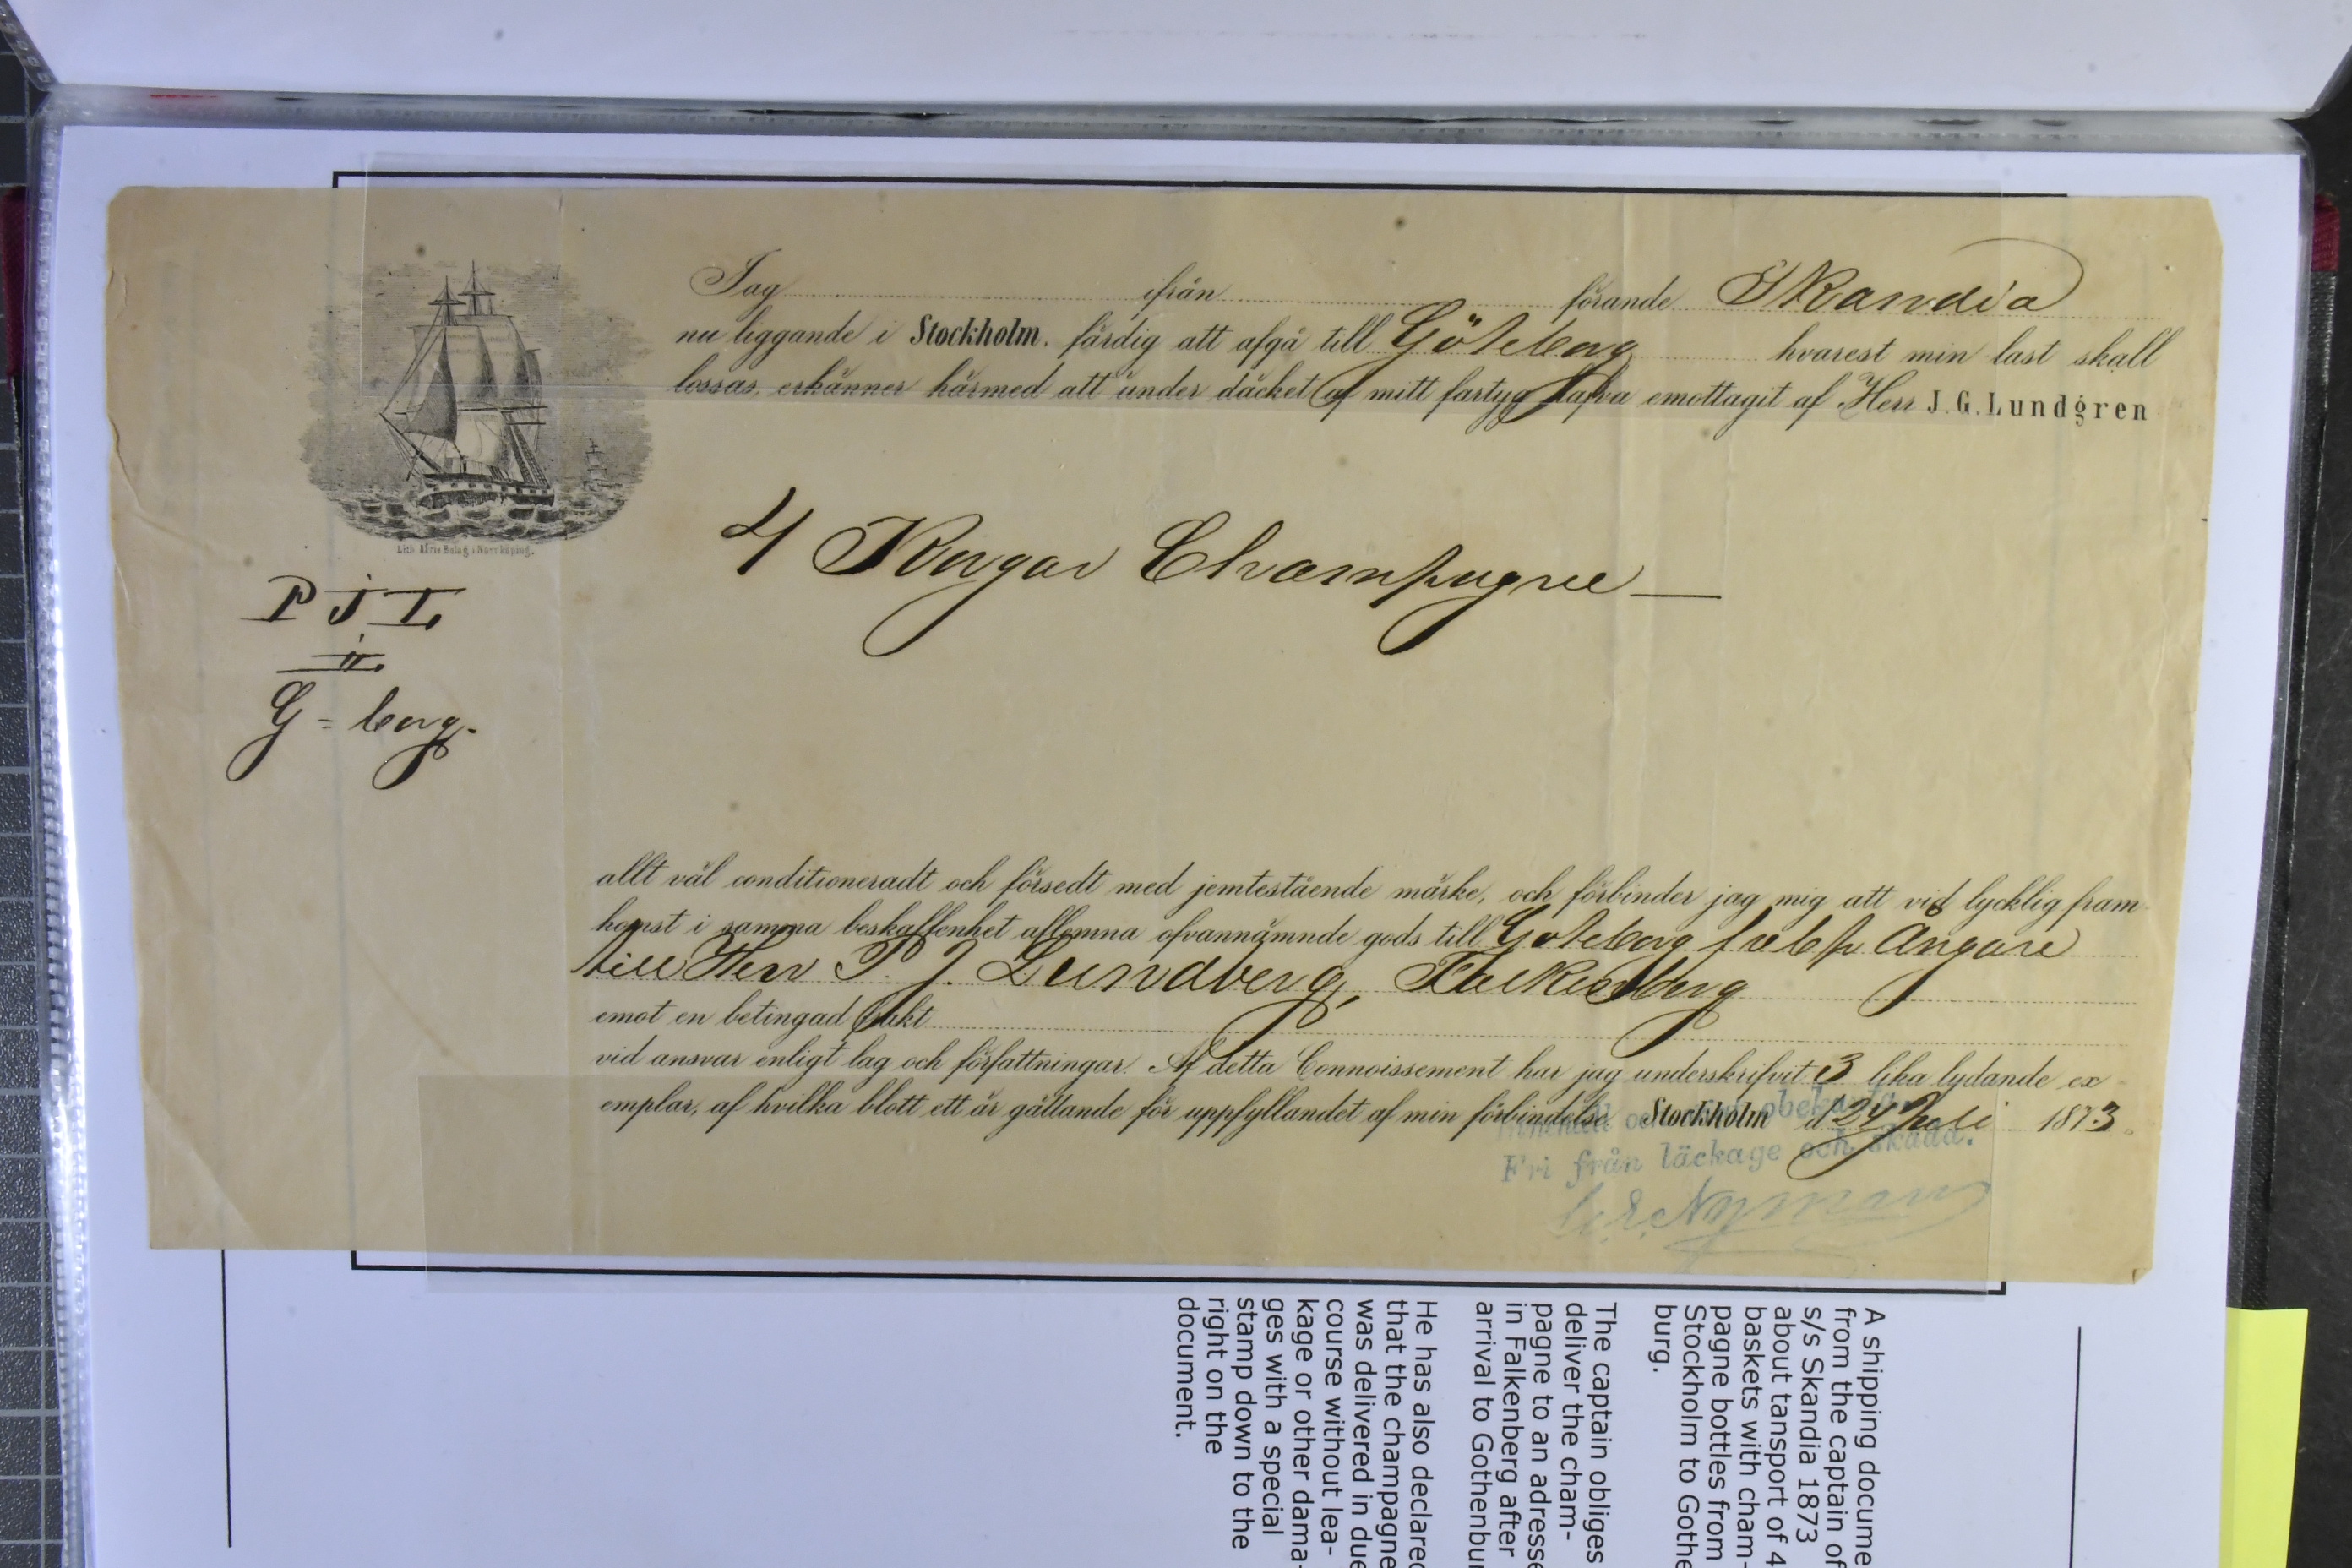 Jag ifrån förande Skandia
nu liggande i Stockholm. färdig att afgå till Göteborg hvarest min last skall
lossas, erkänner härmed att under däcket af mitt fartyg hafva emottagit af Herr J. G. Lundgren
Lith. i Norrköping.
4 Korgar Champagne
P J L
G = borg.
allt väl conditioneradt och försedt med jemtestående märke, och förbinder jag mig att vid lycklig fram
komst i samma beskaffenhet aflemna ofvannämnde gods till Göteborg Ångare
till Herr P. J. Lundberg, Falkenberg
emot en betingad frakt
vid ansvar enligt lag och författningar. Af detta Connoissement har jag underskrifvit 3 lika lydande ex
emplar, af hvilka blott ett är gällande för uppfyllandet af min förbindelse. Stockholm d 24 Juli 1873.
Innehåll och obekant
Fri från läckage och skada.
Nyman
A shipping docume
from the captain of
s/s Skandia 1873
about tansport of 4
baskets with cham-
pagne bottles from
Stockholm to Gothe
burg.
The captain obliges
deliver the cham-
pagne to an adresse
in Falkenberg after
arrival to Gothenbur
He has also declared
that the champagne
was delivered in due
course without lea-
kage or other dama-
ges with a special
stamp down to the
right on the
document.